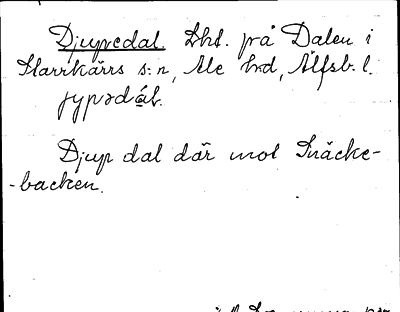 Djupedal. Lht. på Dalen i
Starrkärrs s:n, Ale hrd, Älfsb. l.
jypədál.
Djup dal där mot Snäcke-
-backen.